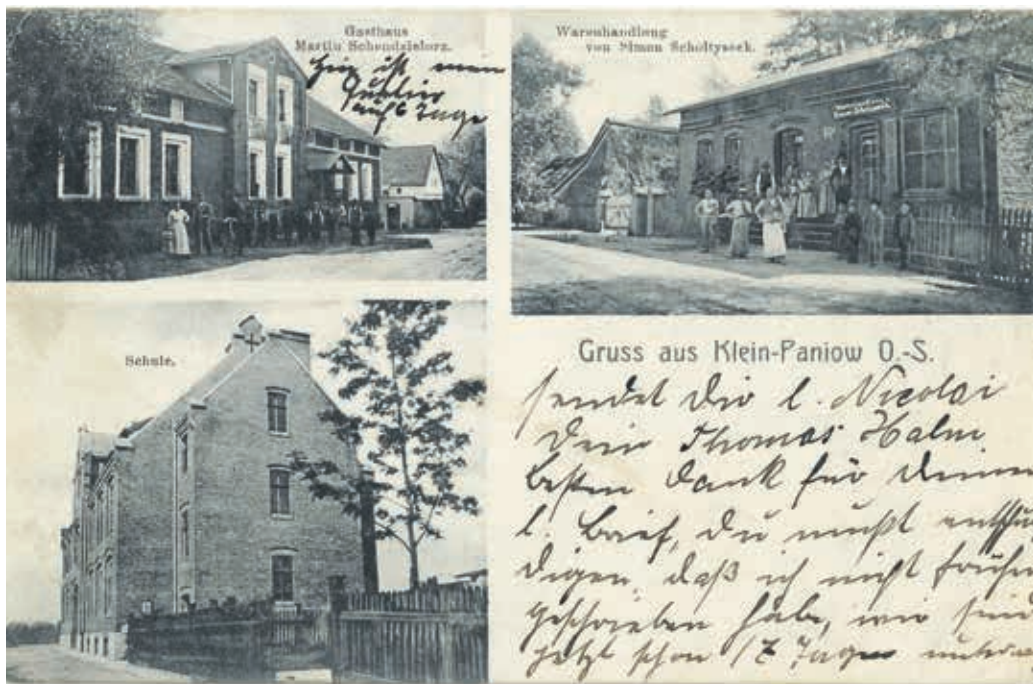 Gasthaus
Martin Schendzielorz.
Hier ist mein
Quartier
auf 6 Tage
Warenhandlung
von Simon Scholtyseck.
Schule.
Gruss aus Klein-Paniow O.-S.
sendet Dir l. Nicolai
Dein Thomas Halm
besten Dank für Deinen
l. Brief, Du mußt entschul
digen, daß ich nicht früher
geschrieben habe, wir sind
jetzt schon 17 Tage